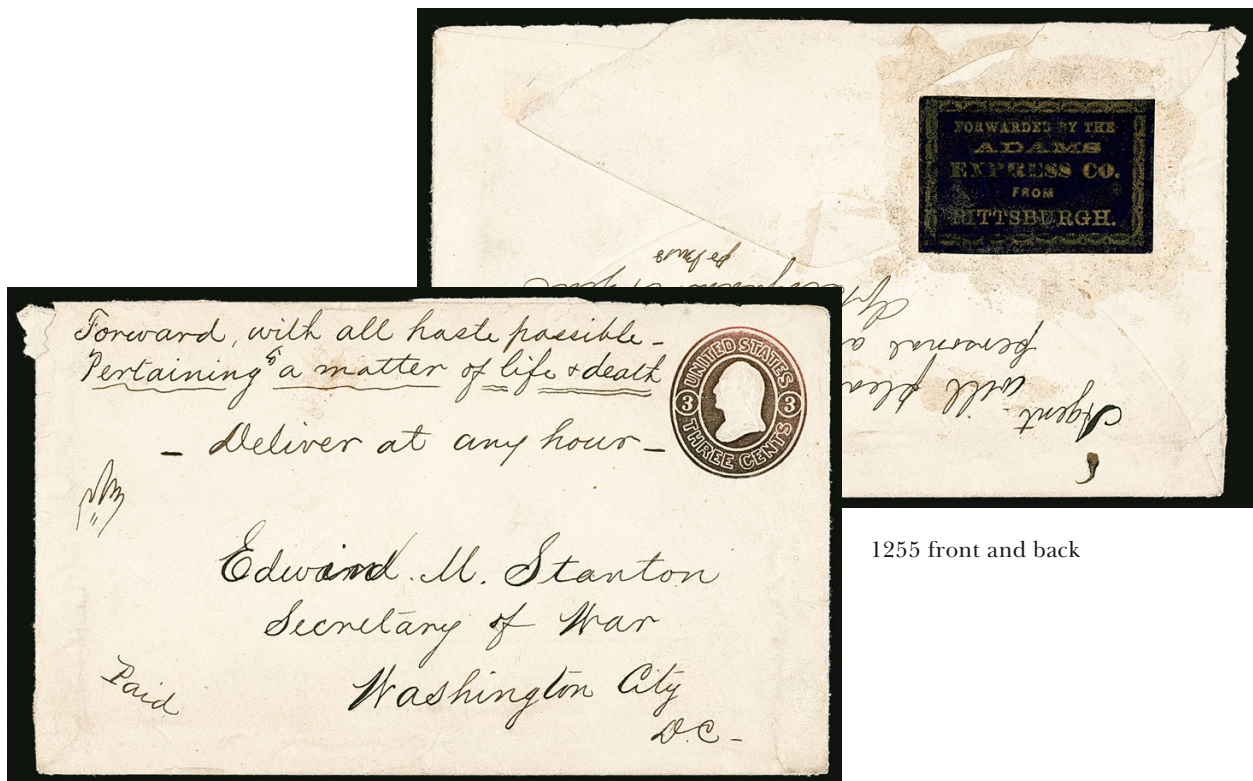 FORWARDED BY THE
ADAMS
EXPRESS CO.
FROM
PITTSBURGH.
Agent will
personal
Forward, with all haste possible -
Pertaining to a matter of life & death
- Deliver at any hour -
UNITED STATES
3 3
THREE CENTS
Edwin M. Stanton
Secretary of War
Washington City
D.C -
Paid
1255 front and back